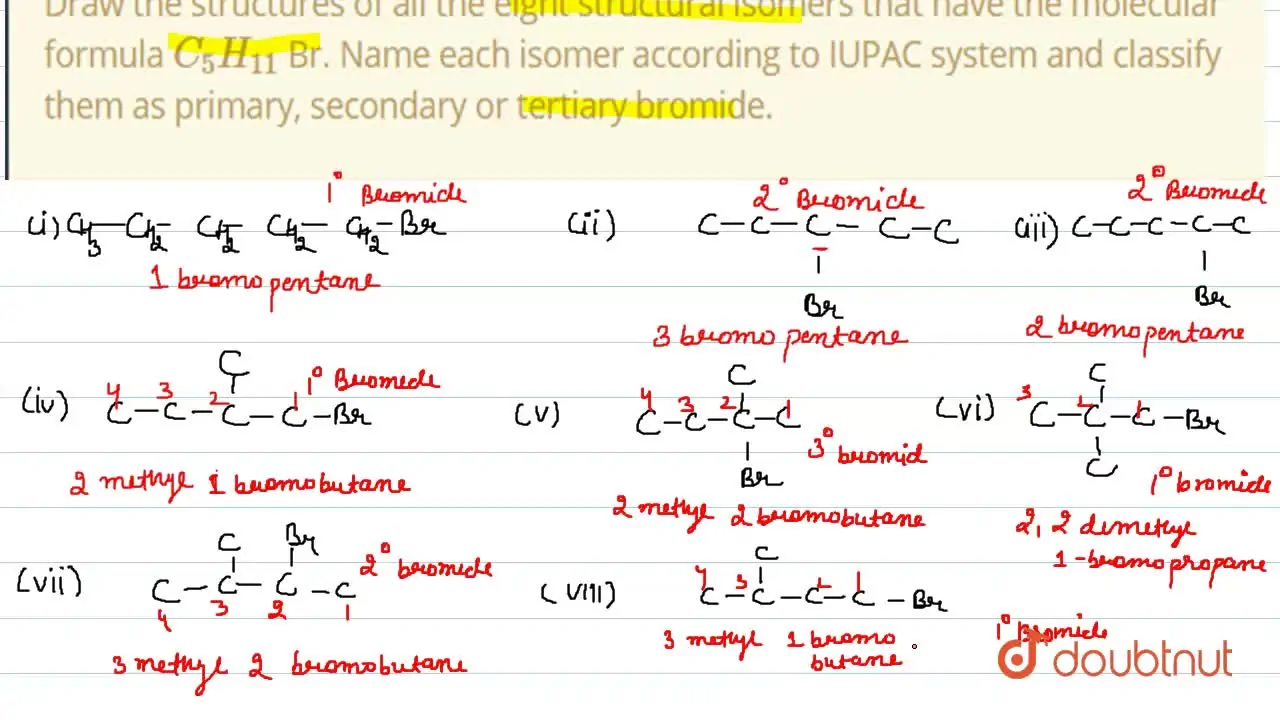 Draw the structures of all the eight structural isomers that have the molecular
formula C5H11 Br. Name each isomer according to IUPAC system and classify
them as primary, secondary or tertiary bromide.
1° Bromide
(i) CH3-CH2-CH2-CH2-CH2-Br
1 bromo pentane
2° Bromide
(ii) C-C-C-C-C
Br
3 bromo pentane
2° Bromide
(iii) C-C-C-C-C
Br
2 bromopentane
C
4 3 2 1 1° Bromide
(iv) C-C-C-C-Br
2 methyl 1 bromobutane
C
4 3 2 1
(v) C-C-C-C
Br
3° bromid
2 methyl 2 bromobutane
C
3 2 1
(vi) C-C-C-Br
C
1° bromide
2, 2 dimethyl
1-bromopropane
C Br
2° bromide
(vii) C-C-C-C
4 3 2 1
3 methyl 2 bromobutane
C
4 3 2 1
(VIII) C-C-C-C-Br
3 methyl 1 bromo
butane
1° Bromide
doubtnut